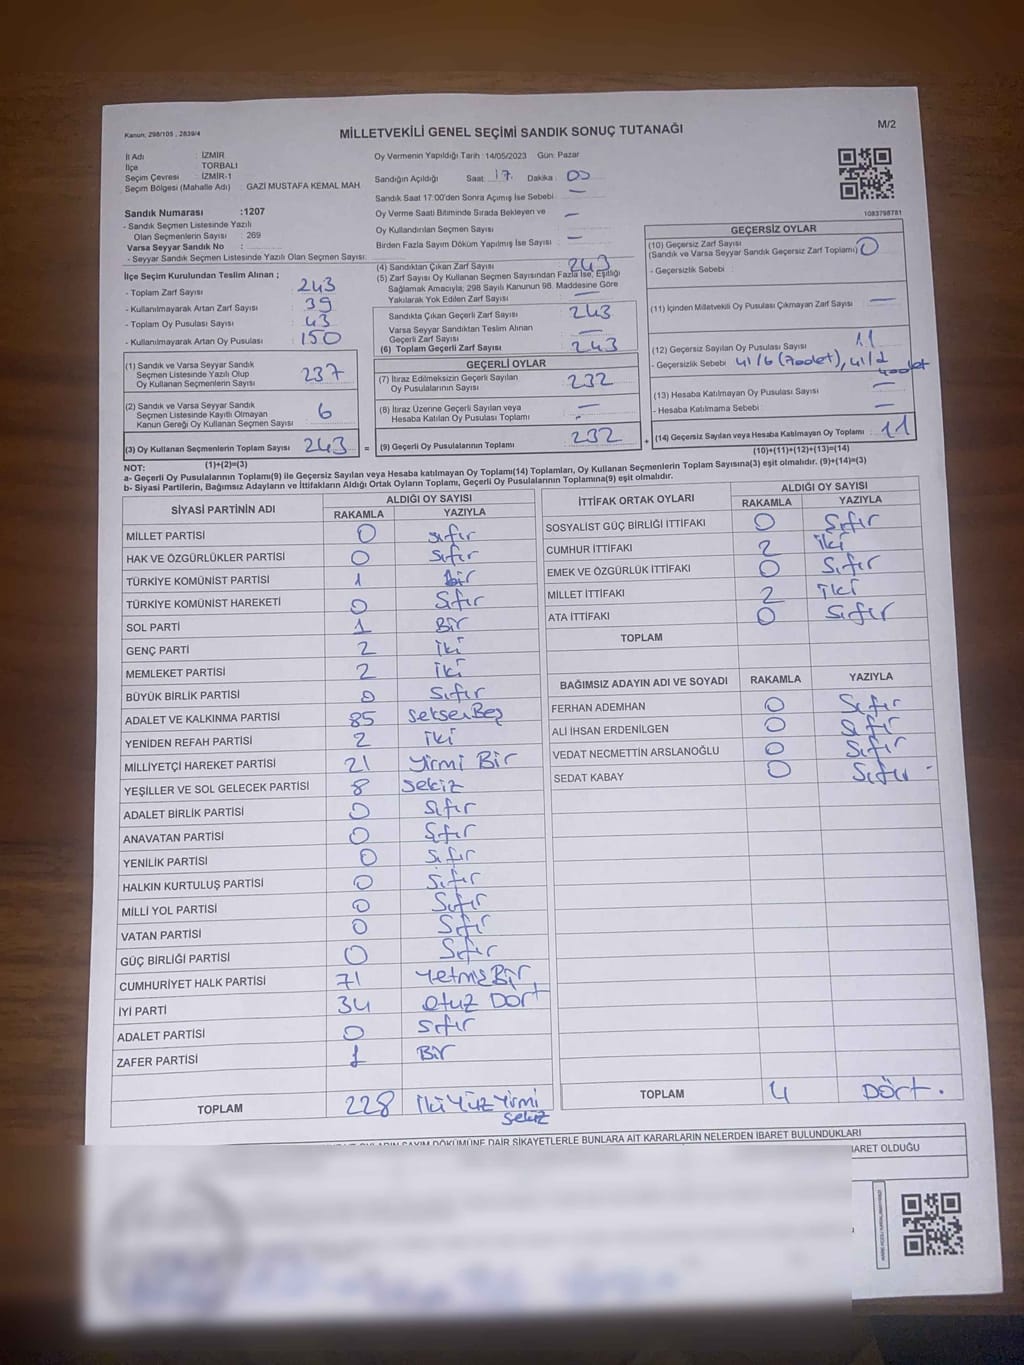 Kanun, 298/105 , 2839/4
MİLLETVEKİLİ GENEL SEÇİMİ SANDIK SONUÇ TUTANAĞI
M/2
İl Adı : İZMİR
İlçe : TORBALI
Seçim Çevresi : İZMİR-1
Seçim Bölgesi (Mahalle Adı) : GAZİ MUSTAFA KEMAL MAH.
Oy Vermenin Yapıldığı Tarih : 14/05/2023 Gün: Pazar
Sandığın Açıldığı Saat: 17 Dakika : 00
Sandık Saat 17:00'den Sonra Açımış İse Sebebi : —
Oy Verme Saati Bitiminde Sırada Bekleyen ve
Oy Kullandırılan Seçmen Sayısı : —
Birden Fazla Sayım Döküm Yapılmış İse Sayısı : —
Sandık Numarası :1207
- Sandık Seçmen Listesinde Yazılı
Olan Seçmenlerin Sayısı : 269
Varsa Seyyar Sandık No :
- Seyyar Sandık Seçmen Listesinde Yazılı Olan Seçmen Sayısı:
1083798781
İlçe Seçim Kurulundan Teslim Alınan ;
- Toplam Zarf Sayısı : 243
- Kullanılmayarak Artan Zarf Sayısı : 39
- Toplam Oy Pusulası Sayısı : 43
- Kullanılmayarak Artan Oy Pusulası : 150
(1) Sandık ve Varsa Seyyar Sandık
Seçmen Listesinde Yazılı Olup
Oy Kullanan Seçmenlerin Sayısı : 237
(2) Sandık ve Varsa Seyyar Sandık
Seçmen Listesinde Kayıtlı Olmayan
Kanun Gereği Oy Kullanan Seçmen Sayısı : 6
(3) Oy Kullanan Seçmenlerin Toplam Sayısı : 243 =
(1)+(2)=(3)
(4) Sandıktan Çıkan Zarf Sayısı : 243
(5) Zarf Sayısı Oy Kullanan Seçmen Sayısından Fazla İse, Eşitliği
Sağlamak Amacıyla, 298 Sayılı Kanunun 98. Maddesine Göre
Yakılarak Yok Edilen Zarf Sayısı : —
Sandıkta Çıkan Geçerli Zarf Sayısı : 243
Varsa Seyyar Sandıktan Teslim Alınan
Geçerli Zarf Sayısı : —
(6) Toplam Geçerli Zarf Sayısı : 243
GEÇERLİ OYLAR
(7) İtiraz Edilmeksizin Geçerli Sayılan
Oy Pusulalarının Sayısı : 232
(8) İtiraz Üzerine Geçerli Sayılan veya
Hesaba Katılan Oy Pusulası Toplamı : —
(9) Geçerli Oy Pusulalarının Toplamı : 232 +
GEÇERSİZ OYLAR
(10) Geçersiz Zarf Sayısı
(Sandık ve Varsa Seyyar Sandık Geçersiz Zarf Toplamı) : 0
- Geçersizlik Sebebi :
(11) İçinden Milletvekili Oy Pusulası Çıkmayan Zarf Sayısı : —
(12) Geçersiz Sayılan Oy Pusulası Sayısı : 11
- Geçersizlik Sebebi : 41/6 (7adet), 41/2
4adet
(13) Hesaba Katılmayan Oy Pusulası Sayısı : —
- Hesaba Katılmama Sebebi : —
(14) Geçersiz Sayılan veya Hesaba Katılmayan Oy Toplamı : 11
(10)+(11)+(12)+(13)=(14)
NOT:
a- Geçerli Oy Pusulalarının Toplamı(9) ile Geçersiz Sayılan veya Hesaba katılmayan Oy Toplamı(14) Toplamları, Oy Kullanan Seçmenlerin Toplam Sayısına(3) eşit olmalıdır. (9)+(14)=(3)
b- Siyasi Partilerin, Bağımsız Adayların ve İttifakların Aldığı Ortak Oyların Toplamı, Geçerli Oy Pusulalarının Toplamına(9) eşit olmalıdır.
SİYASİ PARTİNİN ADI ALDIĞI OY SAYISI
RAKAMLA YAZIYLA
MİLLET PARTİSİ 0 sıfır
HAK VE ÖZGÜRLÜKLER PARTİSİ 0 sıfır
TÜRKİYE KOMÜNİST PARTİSİ 1 bir
TÜRKİYE KOMÜNİST HAREKETİ 0 Sıfır
SOL PARTİ 1 Bir
GENÇ PARTİ 2 iki
MEMLEKET PARTİSİ 2 iki
BÜYÜK BİRLİK PARTİSİ 0 Sıfır
ADALET VE KALKINMA PARTİSİ 85 seksenBeş
YENİDEN REFAH PARTİSİ 2 iki
MİLLİYETÇİ HAREKET PARTİSİ 21 Yirmi Bir
YEŞİLLER VE SOL GELECEK PARTİSİ 8 Sekiz
ADALET BİRLİK PARTİSİ 0 Sıfır
ANAVATAN PARTİSİ 0 Sıfır
YENİLİK PARTİSİ 0 Sıfır
HALKIN KURTULUŞ PARTİSİ 0 Sıfır
MİLLİ YOL PARTİSİ 0 Sıfır
VATAN PARTİSİ 0 Sıfır
GÜÇ BİRLİĞİ PARTİSİ 0 Sıfır
CUMHURİYET HALK PARTİSİ 71 YetmişBir
İYİ PARTİ 34 otuz Dört
ADALET PARTİSİ 0 sıfır
ZAFER PARTİSİ 1 Bir
TOPLAM 228 İkiYüzYirmi
sekiz
İTTİFAK ORTAK OYLARI ALDIĞI OY SAYISI
RAKAMLA YAZIYLA
SOSYALİST GÜÇ BİRLİĞİ İTTİFAKI 0 Sıfır
CUMHUR İTTİFAKI 2 iki
EMEK VE ÖZGÜRLÜK İTTİFAKI 0 Sıfır
MİLLET İTTİFAKI 2 iki
ATA İTTİFAKI 0 Sıfır
TOPLAM
BAĞIMSIZ ADAYIN ADI VE SOYADI RAKAMLA YAZIYLA
FERHAN ADEMHAN 0 Sıfır
ALİ İHSAN ERDENİLGEN 0 Sıfır
VEDAT NECMETTİN ARSLANOĞLU 0 Sıfır
SEDAT KABAY 0 Sıfır
TOPLAM 4 Dört.
DÖKÜMÜNE DAİR ŞİKAYETLERLE BUNLARA AİT KARARLARIN NELERDEN İBARET BULUNDUKLARI
OLDUĞU